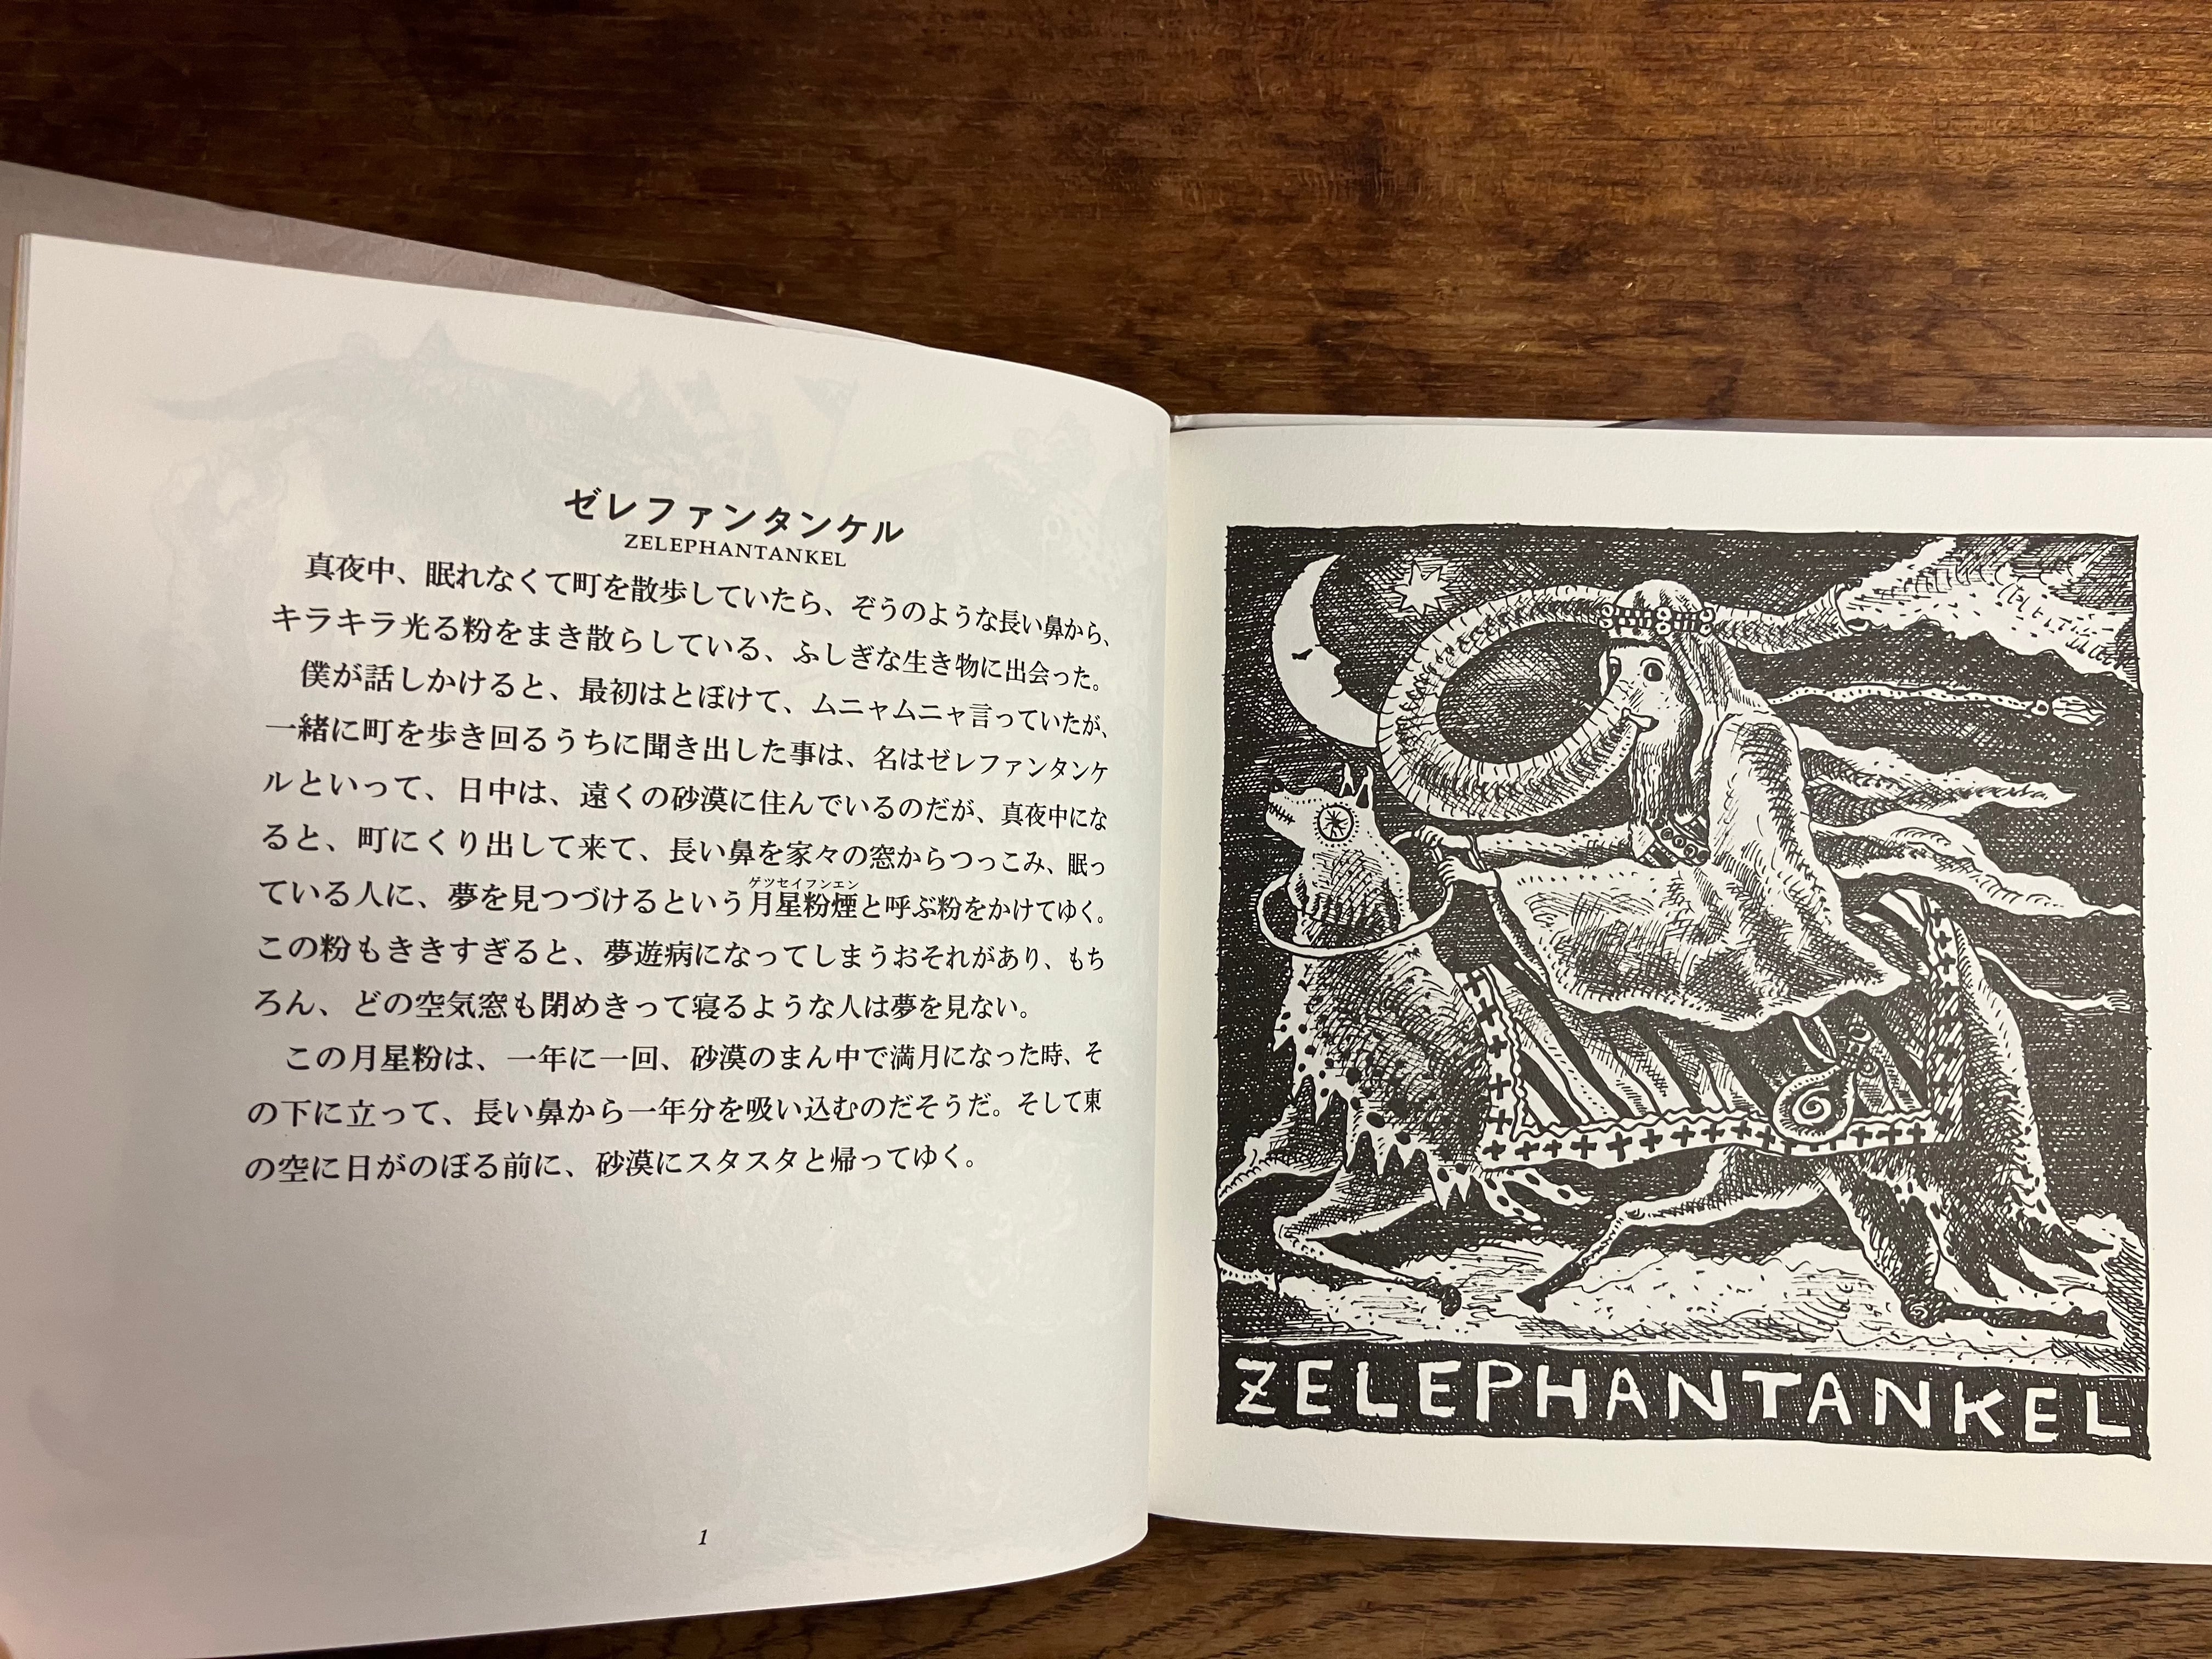 ゼレファンタンケル
ZELEPHANTANKEL
真夜中、眠れなくて町を散歩していたら、ぞうのような長い鼻から、
キラキラ光る粉をまき散らしている、ふしぎな生き物に出会った。
僕が話しかけると、最初はとぼけて、ムニャムニャ言っていたが、
一緒に町を歩き回るうちに聞き出した事は、名はゼレファンタンケ
ルといって、日中は、遠くの砂漠に住んでいるのだが、真夜中にな
ると、町にくり出して来て、長い鼻を家々の窓からつっこみ、眠っ
ゲツセイフンエン
ている人に、夢を見つづけるという月星粉煙と呼ぶ粉をかけてゆく。
この粉もききすぎると、夢遊病になってしまうおそれがあり、もち
ろん、どの空気窓も閉めきって寝るような人は夢を見ない。
この月星粉は、一年に一回、砂漠のまん中で満月になった時、そ
の下に立って、長い鼻から一年分を吸い込むのだそうだ。そして東
の空に日がのぼる前に、砂漠にスタスタと帰ってゆく。
1
ZELEPHANTANKEL